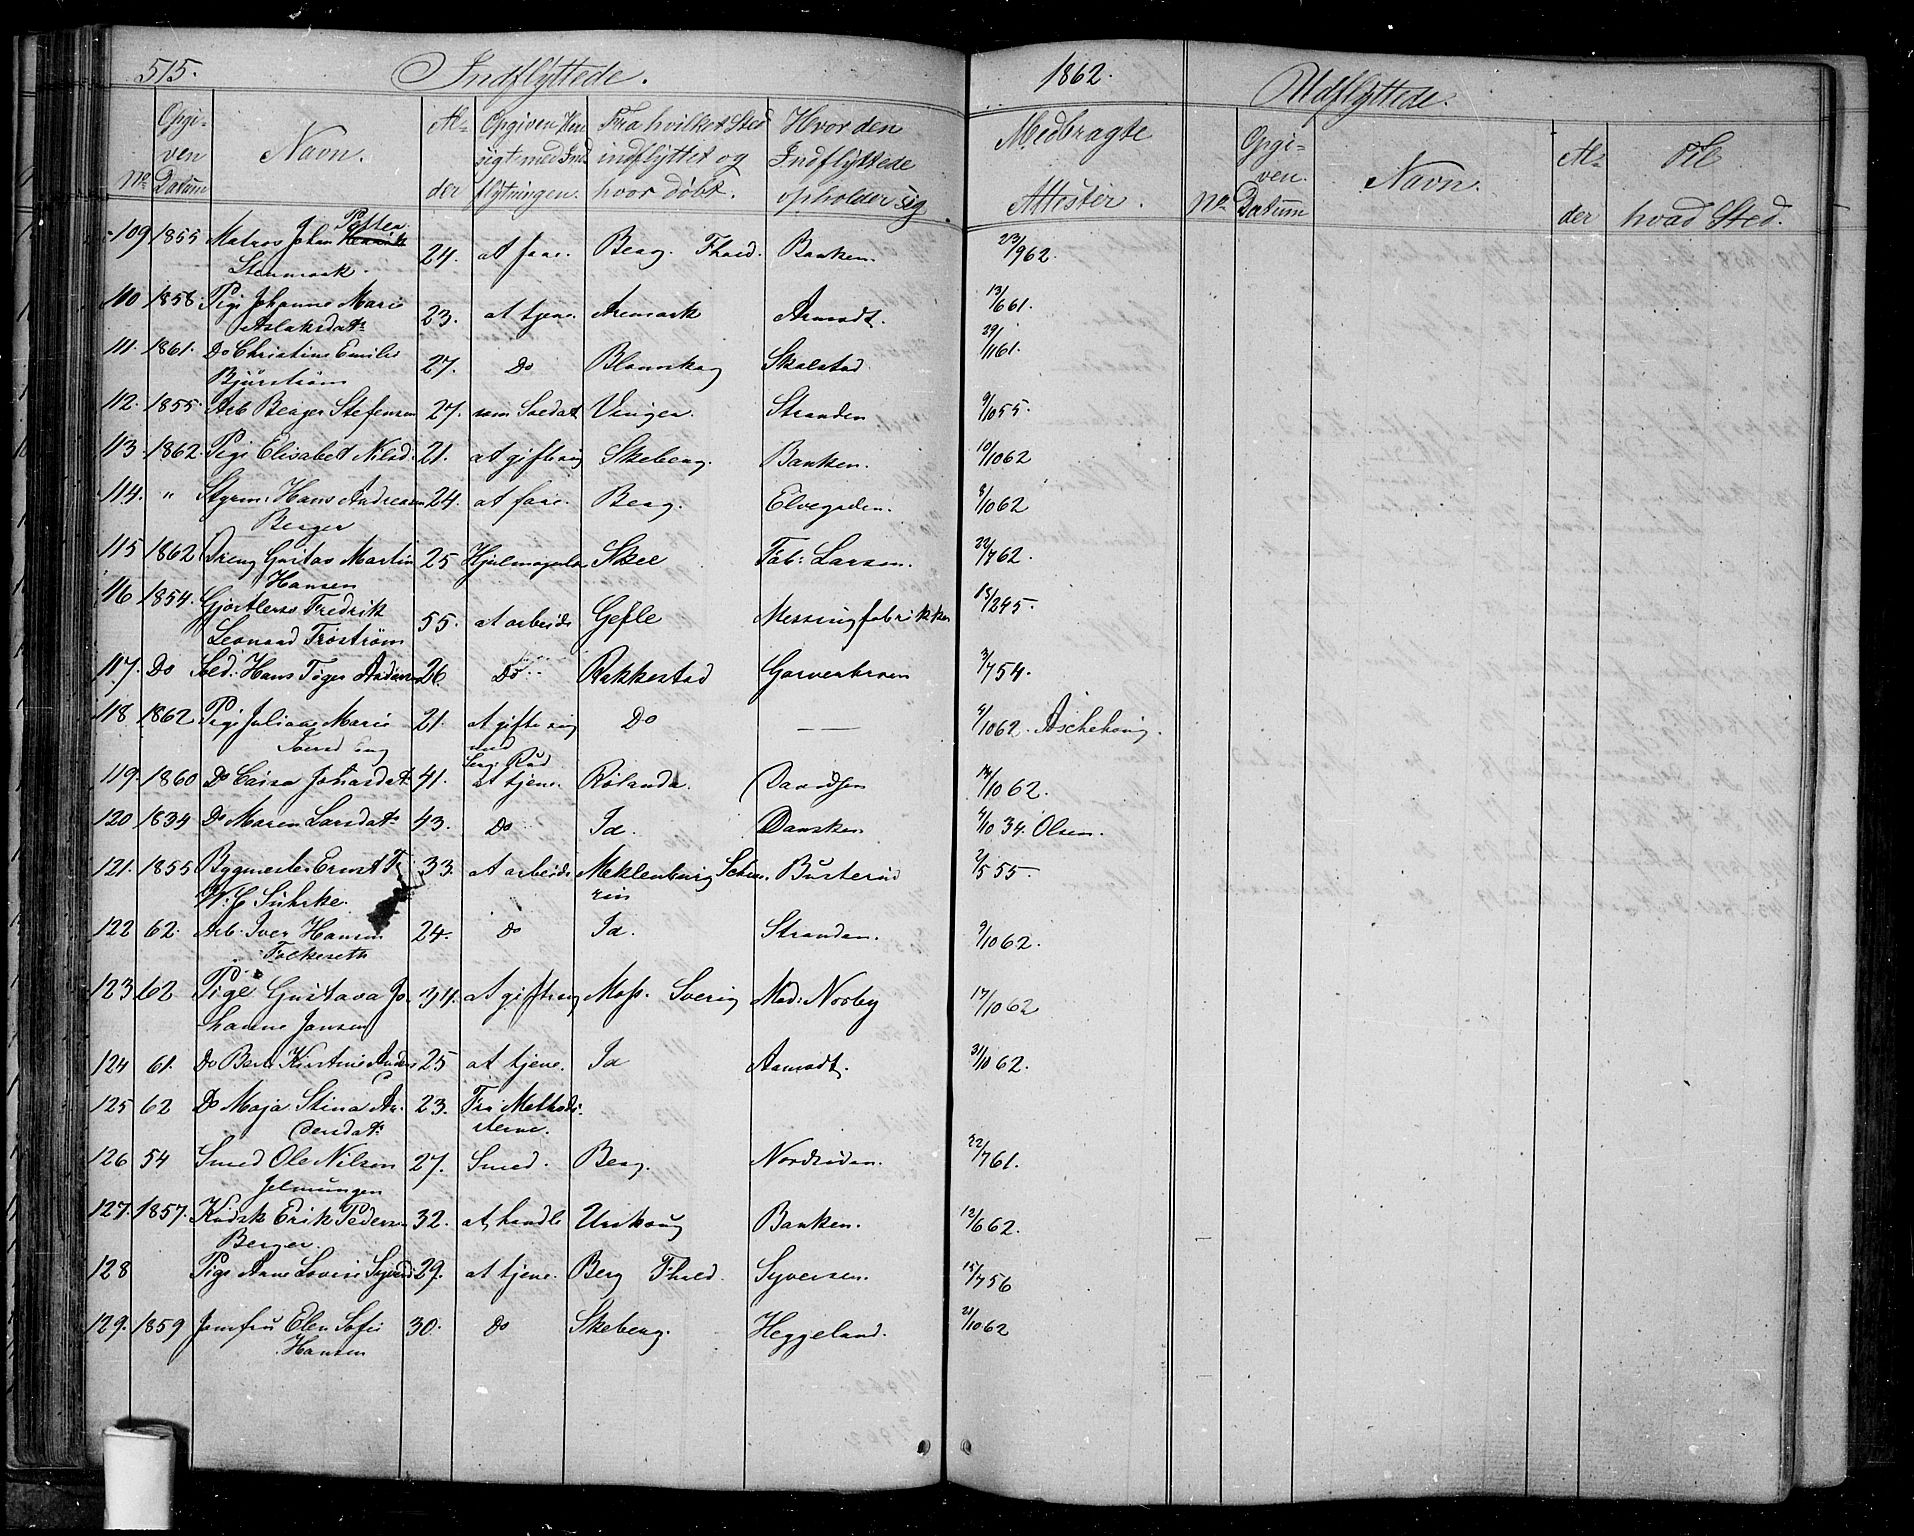 515. Indflyttede. 1862. Udflyttede.
No Opgiven Datum Navn. Alder Opgiven Hensigt med Indflytningen. Fra hvilket Sted indflyttet og hvor døbt. Hvor den Indflyttede opholder sig Medbragte Attester. No. Opgiven Datum Navn. Alder Til hvad Sted.
109 1855 Matros Johan Petter 24. at fare. Berg. Fhald. Banken. 23/9 62.
Stenmark.
110 1858 Pige Johanne Marie 23. at tjene Aremark Aamodt. 13/6 61.
Aslaksdatr
111. 1861. Do Christine Emilie 27. Do Blomskog Skalstad. 29/11 61.
Bjürström
112. 1855. Arb Berger Stefensen 27. som Soldat Vinger. Stranden 9/10 55.
113. 1862. Pige Elisabet Nilsd. 21. at gifte sig Skeberg. Banken. 10/10 62
114. " Styrm: Hans Andreasen 24. at fare. Berg. Elvegaden. 8/10 62
Berger
115 1862 Dreng Gustav Martin 25 Skee Fab: Larsen. 22/7 62.
Hansen
116 1854. Fredrik 55. at arbeide Gefle Messingfabrikken 15/2 45.
Leonard Froström
117. Do Hans 26. Do Rakkestad 3/7 54.
118 1862 Pige Juliane Marie 21. at gifte sig Do — — 4/10 62. Aschehoug.
Iversd Eng med
Rud
119. 1860 Do Caisa Johansdatr 41. at tjene Rölanda. Davidsen 14/10 62.
120 1834 Do Maren Larsdatr 43. Do Id. Dansken 4/10 34. Olsen.
121. 1855 Bygmester Ernst F. 33. at arbeide Meklenburg Schwe- Busterud 2/5 55.
W. C. Suhrke. rin
122 62. Arb. Iver Hansen 24. Do Id. Stranden. 9/10 62.
Folkeseth
123 62 Pige Gustava Jo- 34. at gifte sig Moss. Sverig Mad: Norby 17/10 62
hanne Jansen
124 61. Do Kirstine Anders 25 at tjene. Id Aamodt. 31/10 62.
125 62 Do Maja Stina An- 23. Fra Methodi-
dersdatr sterne.
126 54 Smed Ole Nilsen 27. Smed. Berg. Nordsiden. 22/7 61.
127. 1857. Kudsk Erik Pedersen 32. at handle Urskoug Banken. 12/6 62.
Berger.
128 Pige Anne Lovise Syversd 29. at tjene. Berg Fhald. Syversen. 15/7 56
129. 1859 Jomfru Elen Sofie 30. Do Skeberg. Heggeland. 21/10 62
Hansen